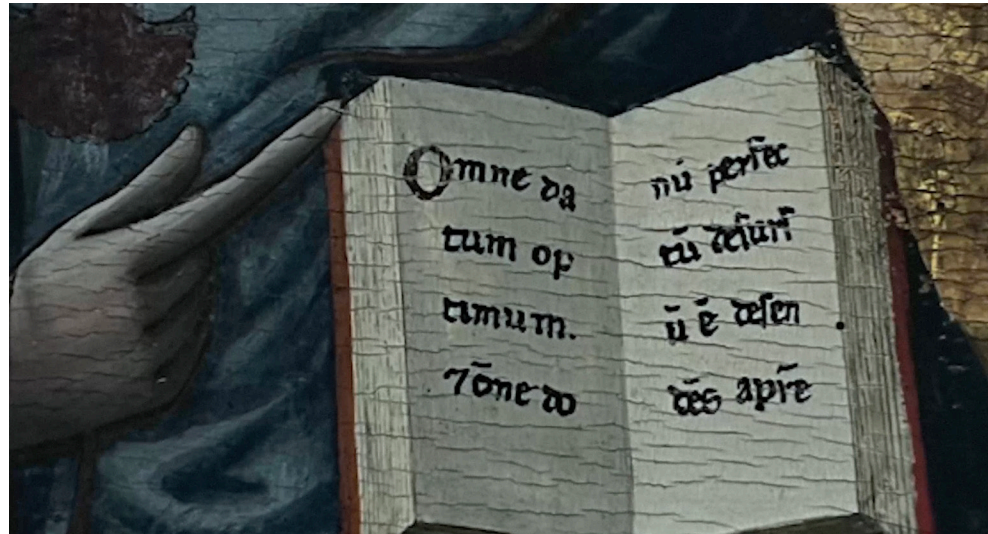 Omne da
tum op
timum.
⁊ōne do
nū perfec
tū desurſ
ū ē deſcen
dēs apr̄e